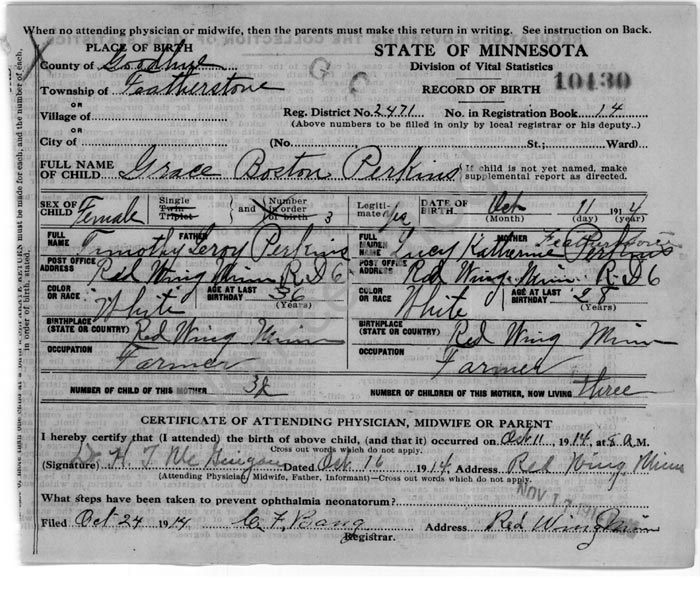 When no attending physician or midwife, then the parents must make this return in writing. See instruction on Back.
PLACE OF BIRTH
STATE OF MINNESOTA
County of Goodhue
Division of Vital Statistics
Township of Featherstone
RECORD OF BIRTH 10430
OR
Village of
Reg. District No. 2471 No. in Registration Book 14
OR
(Above numbers to be filled in only by local registrar or his deputy.)
City of (No. St.; Ward)
FULL NAME OF CHILD Grace Boston Perkins
If child is not yet named, make supplemental report as directed.
SEX OF CHILD Female
Single Twin Triplet } and { Number in order of birth 3
Legitimate Yes
DATE OF BIRTH Oct 11 1914
(Month) (day) (year)
FULL NAME FATHER Timothy Leroy Perkins
FULL MAIDEN NAME MOTHER Lucy Katherine Perkins
POST OFFICE ADDRESS Red Wing Minn R.D 6
POST OFFICE ADDRESS Red Wing Minn. R.D 6
COLOR OR RACE White AGE AT LAST BIRTHDAY 36 (Years)
COLOR OR RACE White AGE AT LAST BIRTHDAY 28 (Years)
BIRTHPLACE (STATE OR COUNTRY) Red Wing Minn
BIRTHPLACE (STATE OR COUNTRY) Red Wing Minn
OCCUPATION Farmer
OCCUPATION Farmer
NUMBER OF CHILD OF THIS MOTHER 3d
NUMBER OF CHILDREN OF THIS MOTHER, NOW LIVING three
CERTIFICATE OF ATTENDING PHYSICIAN, MIDWIFE OR PARENT
I hereby certify that (I attended) the birth of above child, (and that it) occurred on Oct 11, 1914, at 8 A.M.
Cross out words which do not apply.
(Signature) Dr H T McGuigan Dated Oct 16 1914 Address Red Wing Minn
(Attending Physician, Midwife, Father, Informant)—Cross out words which do not apply.
NOV 17 191
What steps have been taken to prevent ophthalmia neonatorum?
Filed Oct 24 1914 C. F. Bang Address Red Wing Minn
Registrar.